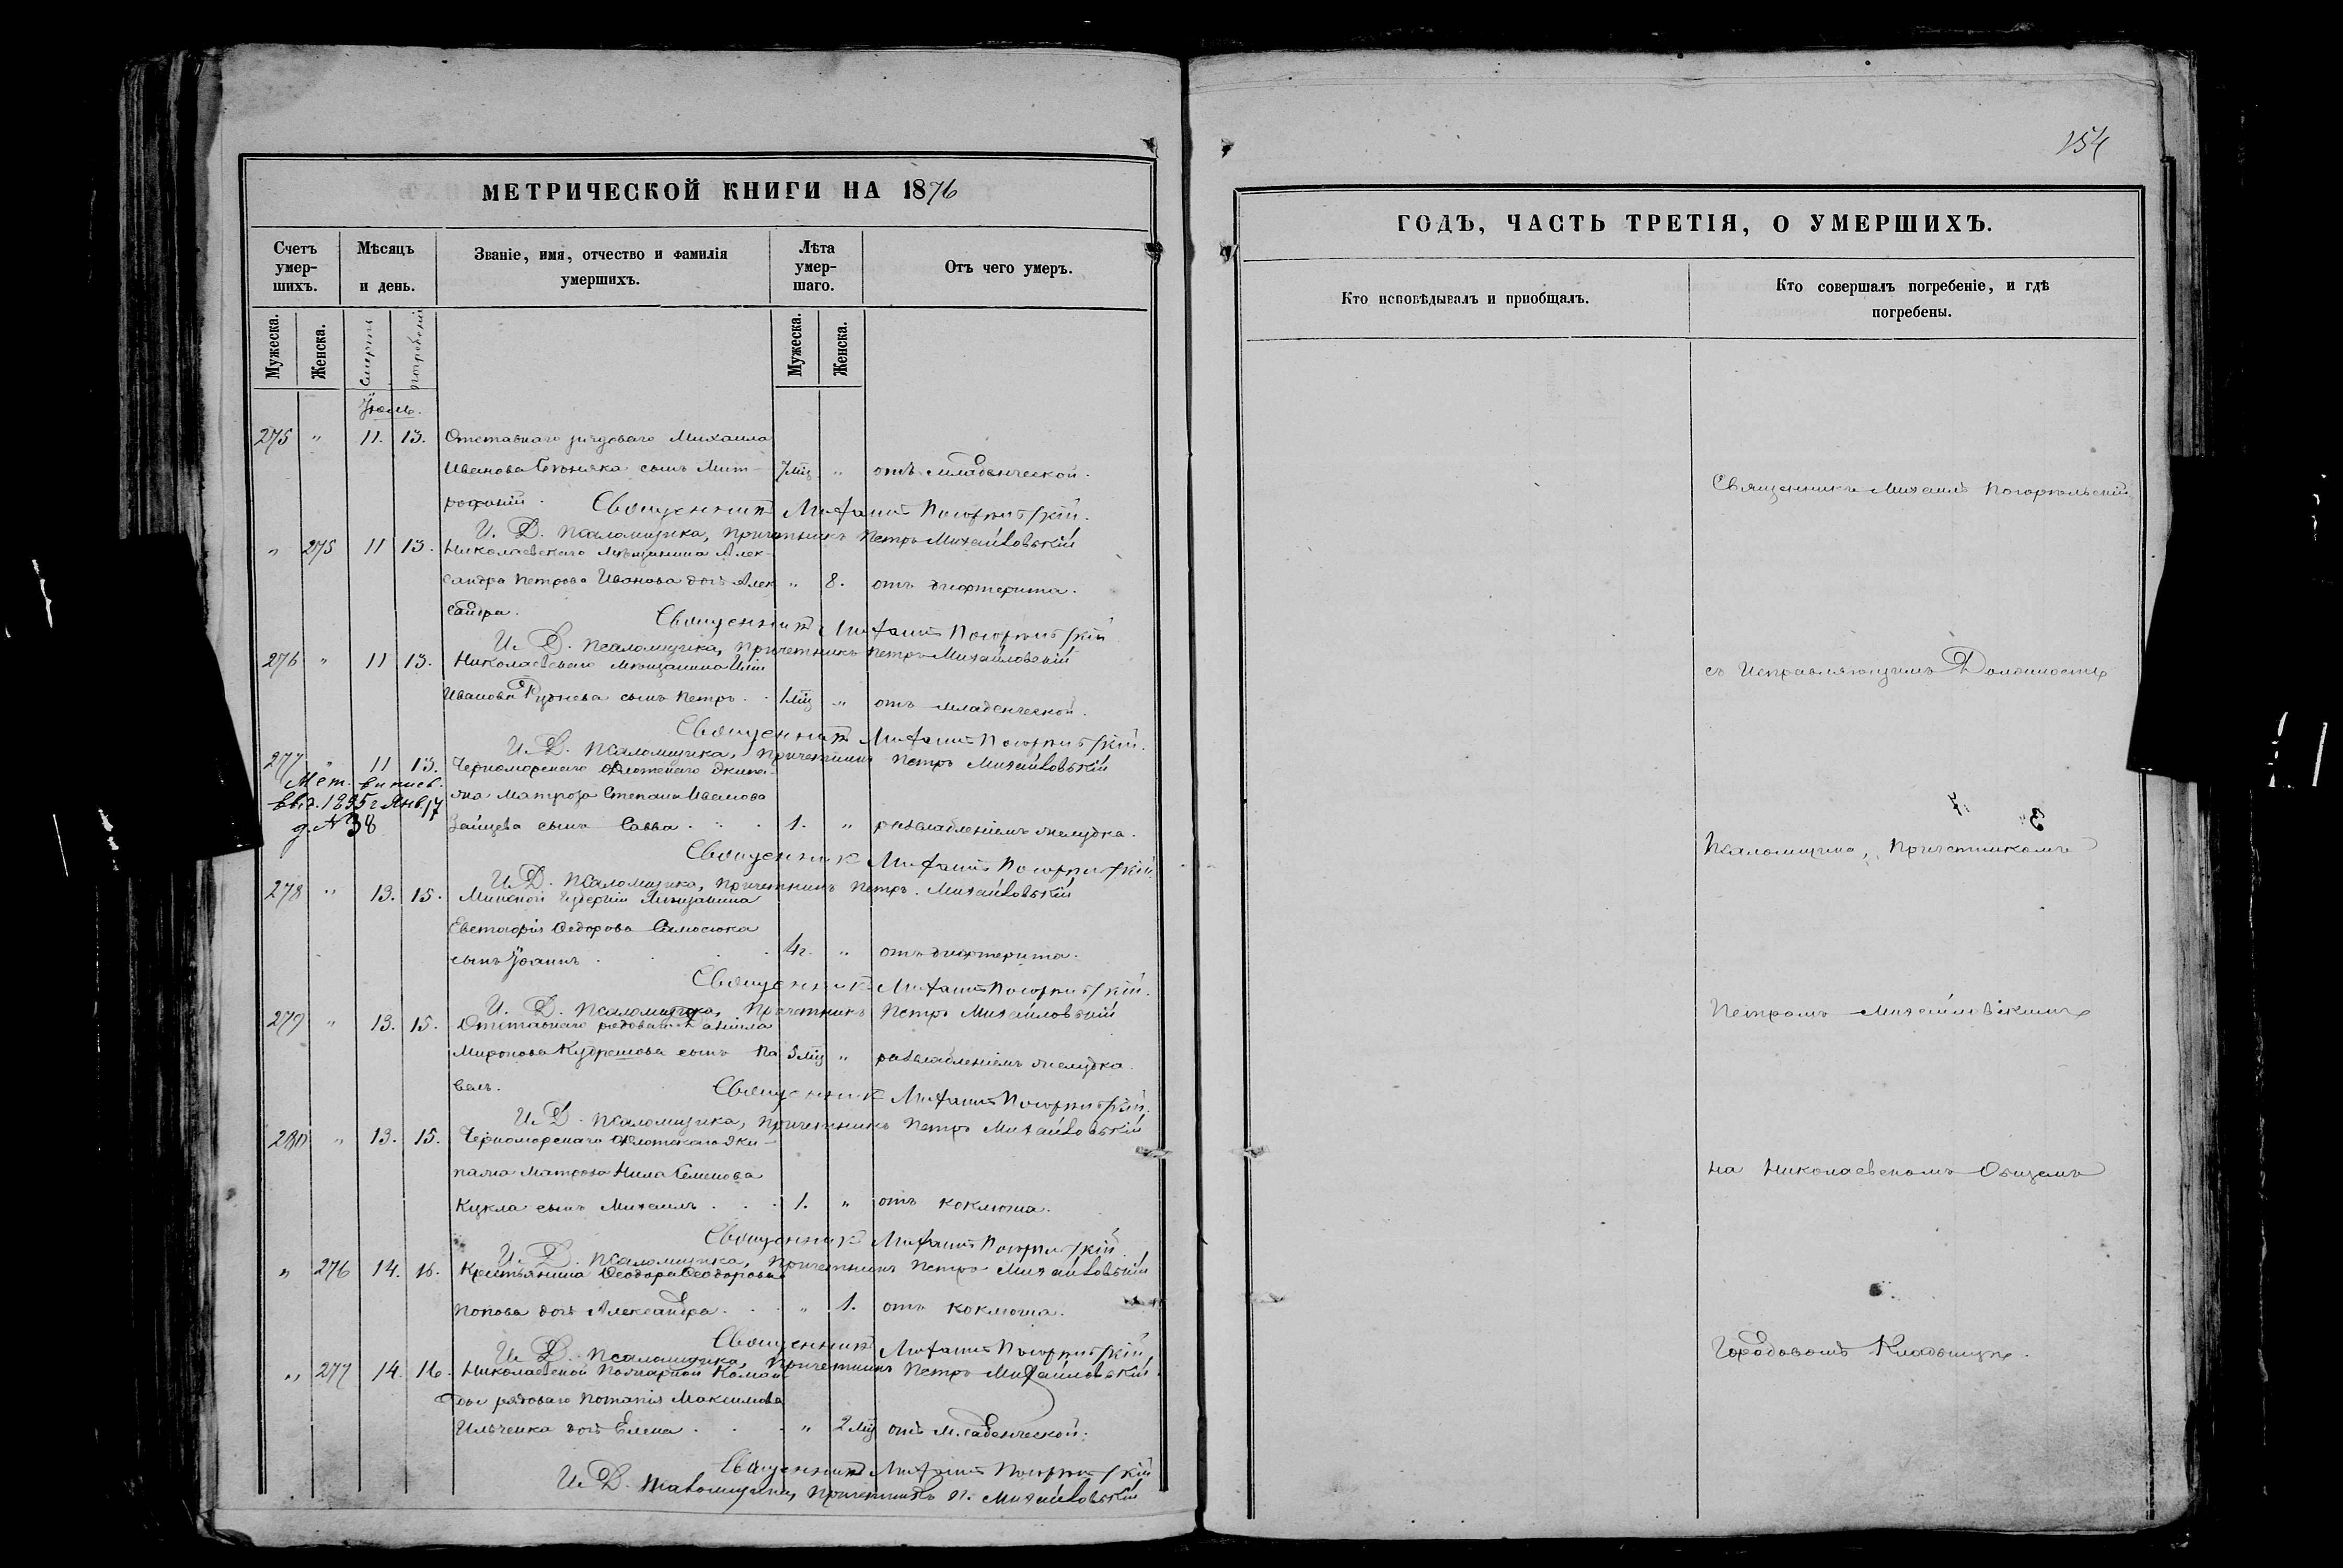 МЕТРИЧЕСКОЙ КНИГИ НА 1876
Счетъ умер-шихъ.
Мѣсяцъ и день.
Званіе, имя, отчество и фамилія умершихъ.
Лѣта умер-шаго.
Отъ чего умеръ.
Мужеска.
Женска.
Смерти
погребенія
Мужеска.
Женска.
Іюль.
275 " 11. 13. Отставнаго рядоваго Михаила
Иванова сынъ Мит- 7 мц " отъ младенческой.
рофаній. Священникъ Михаилъ Погорѣльскій.
И. Д. Псаломщика, Причетникъ Петръ Михайловскій
" 275 11 13. Николаевскаго мѣщанина Алек-
сандра Петрова Иванова дочь Алек " 8. отъ дифтерита.
сандра. Священникъ Михаилъ Погорѣльскій
И. Д. Псаломщика, Причетникъ Петръ Михайловскій
276 " 11 13. Николаевскаго мѣщанина Иліи
Иванова Руднева сынъ Петръ. 1 мц " отъ младенческой.
Священникъ Михаилъ Погорѣльскій.
И. Д. Псаломщика, Причетникъ Петръ Михайловскій
277 " 11 13. Черноморскаго флотскаго экипа-
Мет. выпис.
жа матроза Степана Иванова
выд. 1895 г Янв. 17
д. № 38
Зайцева сынъ Савва. 1. " разслабленіемъ желудка.
Священникъ Михаилъ Погорѣльскій.
И. Д. Псаломщика, Причетникъ Петръ Михайловскій
278 " 13. 15. Минской Губерніи Мѣщанина
Евстафія Ѳедорова
сынъ Іоаннъ. 4 г. " отъ дифтерита.
Священникъ Михаилъ Погорѣльскій.
И. Д. Псаломщика, Причетникъ Петръ Михайловскій
279 " 13. 15. Отставнаго рядоваго Даніила
Миронова Кудряшова сынъ Па 5 мц " разслабленіемъ желудка.
велъ. Священникъ Михаилъ Погорѣльскій.
И. Д. Псаломщика, Причетникъ Петръ Михайловскій
280 " 13. 15. Черноморскаго флотскаго эки-
пажа Матроза Нила Семенова
Кукла сынъ Михаилъ. 1. " отъ коклюша.
Священникъ Михаилъ Погорѣльскій.
И. Д. Псаломщика, Причетникъ Петръ Михайловскій
" 276 14. 16. Крестьянина Ѳеодора Ѳеодорова
Попова дочь Александра. " 1. отъ коклюша.
Священникъ Михаилъ Погорѣльскій,
И. Д. Псаломщика, Причетникъ Петръ Михайловскій.
" 277 14. 16. Николаевской Пожарной Коман
ды рядоваго Потапія Максимова
Ильченка дочь Елена. " 2 мц отъ младенческой.
Священникъ Михаилъ Погорѣльскій
И. Д. Псаломщика, Причетникъ П. Михайловскій
154
ГОДЪ, ЧАСТЬ ТРЕТІЯ, О УМЕРШИХЪ.
Кто исповѣдывалъ и пріобщалъ.
Кто совершалъ погребеніе, и гдѣ погребены.
Священникъ Михаилъ Погорѣльскій
съ Исправляющимъ Должность
Псаломщика, Причетникомъ
Петромъ Михайловскимъ
на Николаевскомъ Общемъ
Городовомъ Кладбищѣ.